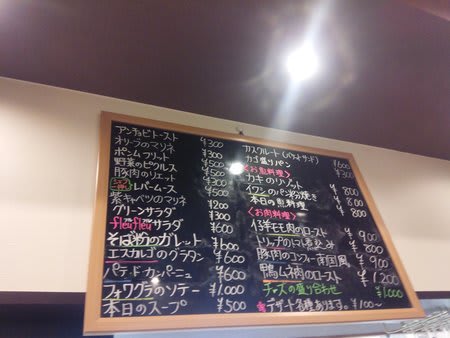 アンチョビトースト ¥300
オリーブのマリネ ¥300
ポンムフリット ¥500
野菜のピクルス ¥500
豚肉のリエット ¥500
レバームース ¥500
紫キャベツのマリネ ¥200
グリーンサラダ ¥300
fleufleuサラダ ¥600
そば粉のガレット ¥600
エスカルゴのグラタン ¥600
パテ・ド・カンパーニュ ¥600
フォワグラのソテー ¥1.000
本日のスープ ¥500
カスクルート(バケットサンド) ¥600
カゴ盛りパン ¥300
<お魚料理>
カキのリゾット ¥800
イワシのパン粉焼き ¥800
本日の魚料理 ¥800
<お肉料理>
仔羊モモ肉のロースト ¥900
トリップのトマト煮込み ¥800
豚肉のコンフィー南国風 ¥900
鴨ムネ肉のロースト ¥1200
チーズの盛り合わせ ¥1.000
デザート各種あります。¥100~